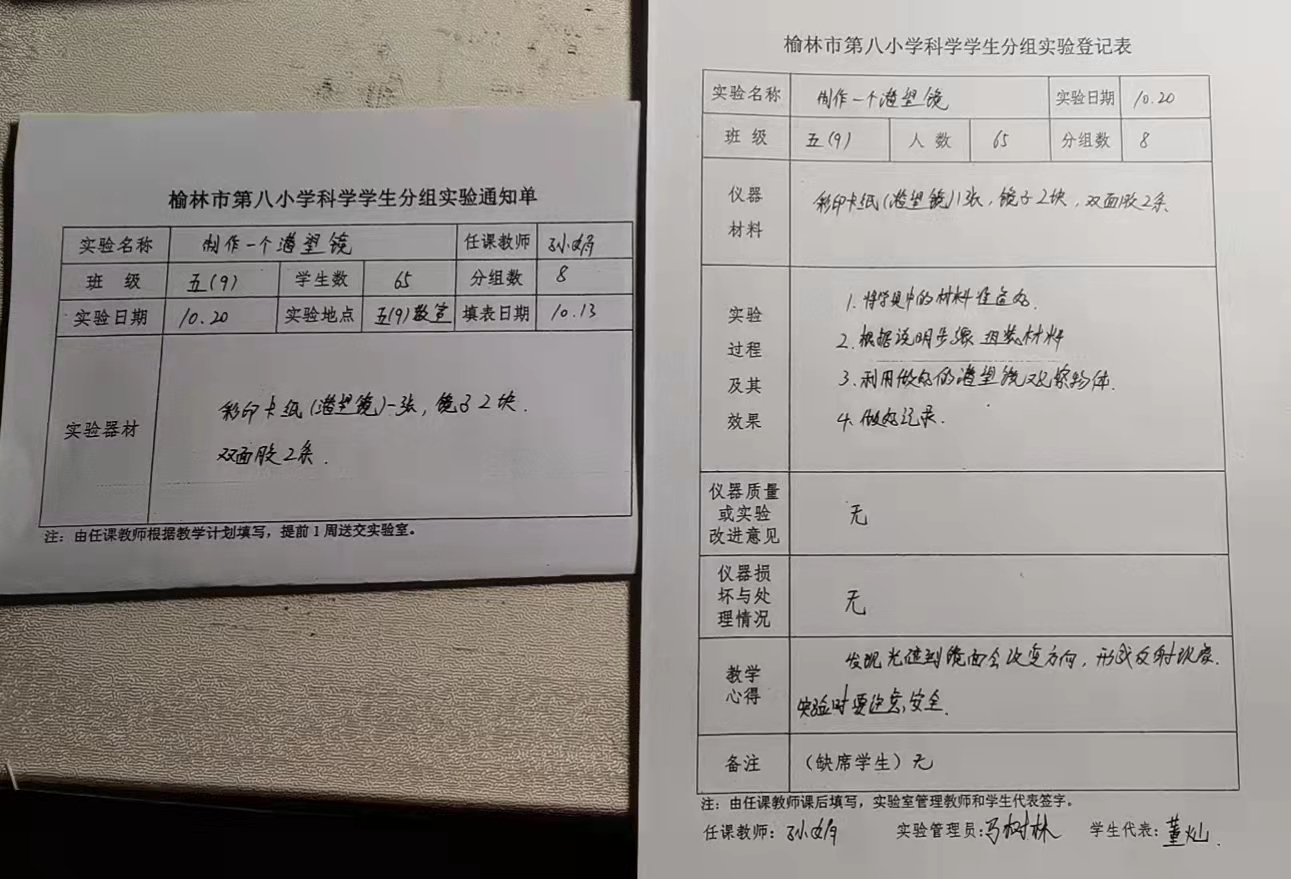 榆林市第八小学科学学生分组实验通知单
实验名称 制作一个潜望镜 任课教师 孙娟
班 级 五(9) 学生数 65 分组数 8
实验日期 10.20 实验地点 五(9)教室 填表日期 10.13
实验器材
彩印卡纸(潜望镜)一张,镜子2块.
双面胶2条.
注:由任课教师根据教学计划填写,提前1周送交实验室。
榆林市第八小学科学学生分组实验登记表
实验名称 制作一个潜望镜 实验日期 10.20
班 级 五(9) 人 数 65 分组数 8
仪器
材料
彩印卡纸(潜望镜)1张,镜子2块,双面胶2条
实验
过程
及其
效果
1.将学具中的材料准备好.
2.根据说明步骤组装材料
3.利用做好的潜望镜观察物体.
4.做好记录.
仪器质量
或实验
改进意见
无
仪器损
坏与处
理情况
无
教学
心得
发现光碰到镜面会改变方向,形成反射现象.
实验时要注意安全.
备注 (缺席学生)无
注:由任课教师课后填写,实验室管理教师和学生代表签字。
任课教师:孙娟 实验管理员:马树林 学生代表:董灿.